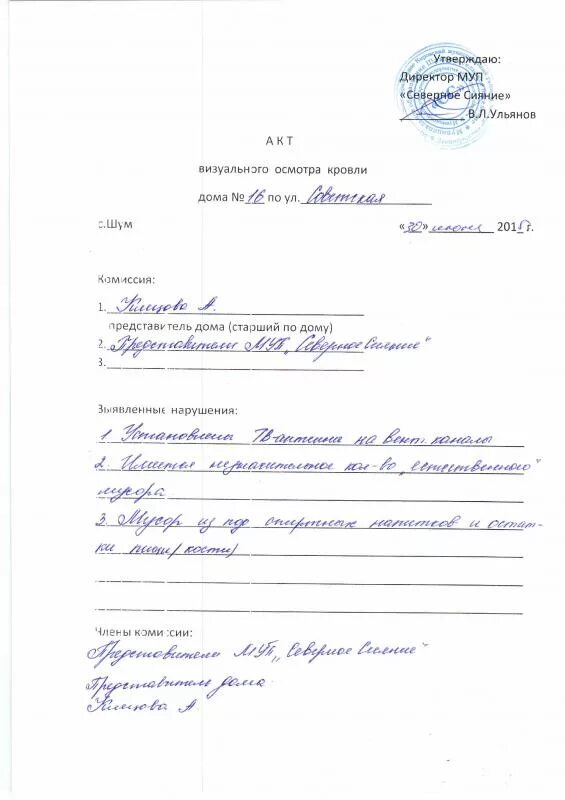 Утверждаю:
Директор МУП
«Северное Сияние»
В.Л.Ульянов
А К Т
визуального осмотра кровли
дома № 16 по ул. Советская
с.Шум
«30» июня 2015г.
Комиссия:
1. Климова А.
представитель дома (старший по дому)
2. Представители МУП „Северное Сияние"
3.
Выявленные нарушения:
1. Установлены ТВ-антенны на вент. каналы
2. Имеется незначительное кол-во „естественного"
мусора
3. Мусор из под спиртных напитков и остат-
ки пищи (кости)
Члены комиссии:
Представители МУП „Северное Сияние"
Представитель дома
Климова А.